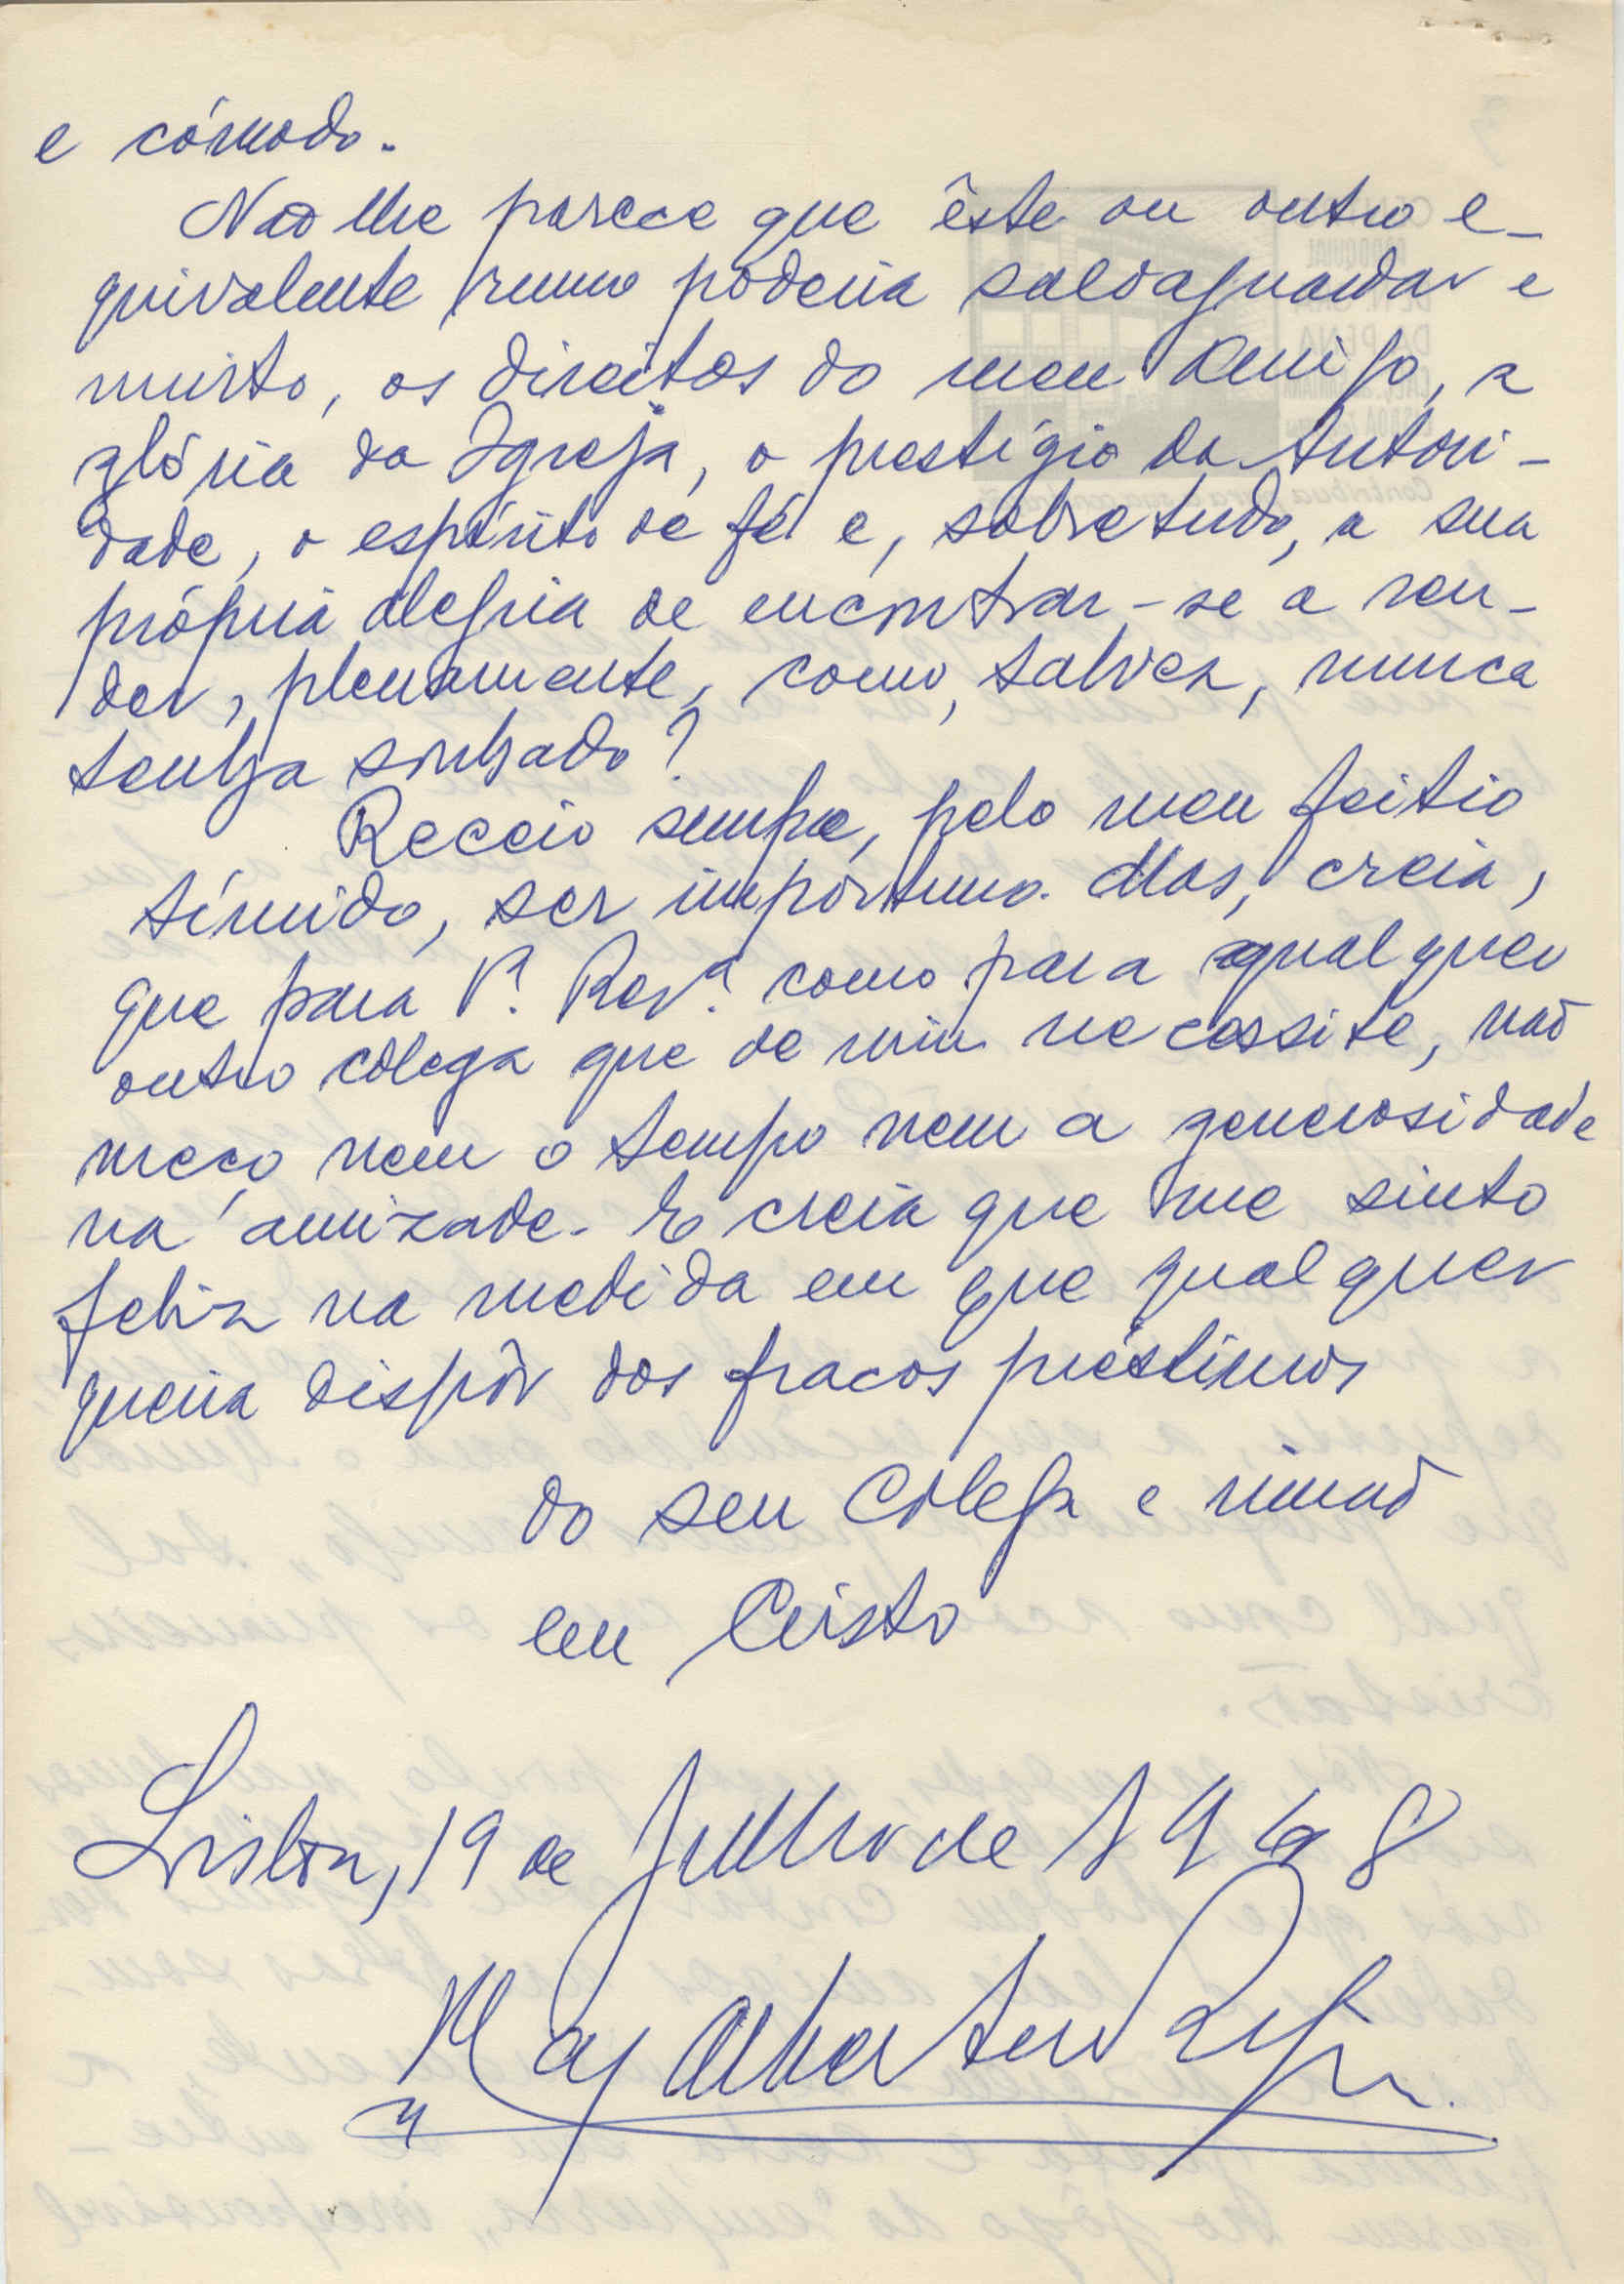 e cómodo.
Não lhe parece que êste ou outro e-
quivalente rumo poderia salvaguardar e
muito, os direitos do meu Amigo, a
glória da Igreja, o prestígio da Autori-
dade, o espírito de fé e, sobretudo, a sua
própria alegria de encontrar-se a ren-
der, plenamente, como, talvez, nunca
tenha sonhado?
Receio sempre, pelo meu feitio
tímido, ser importuno. Mas, creia,
que para Vª. Revª. como para qualquer
outro colega que de mim necessite, não
meço nem o tempo nem a generosidade
na amizade. E creia que me sinto
feliz na medida em que qualquer
queira dispôr dos fracos préstimos
do seu Colega e irmão
em Cristo
Lisboa, 19 de Julho de 1968